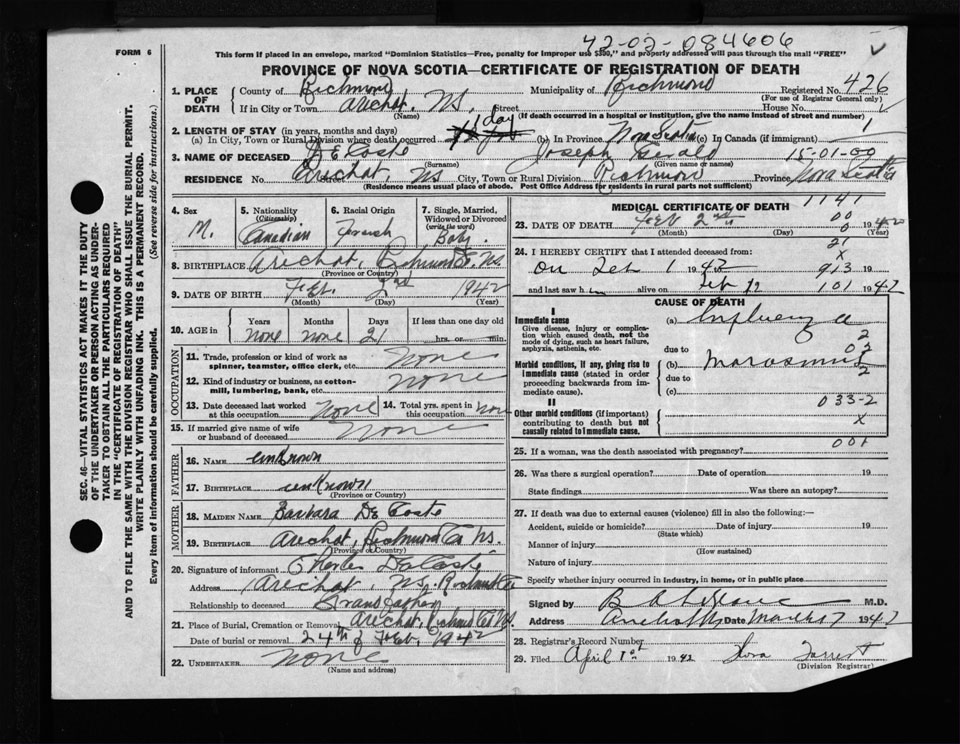 42-02-084606
FORM 6
This form if placed in an envelope, marked "Dominion Statistics—Free, penalty for improper use $300," and properly addressed will pass through the mail "FREE"
PROVINCE OF NOVA SCOTIA—CERTIFICATE OF REGISTRATION OF DEATH
1. PLACE OF DEATH County of Richmond Municipality of Richmond Registered No. 426
(For use of Registrar General only)
If in City or Town Arichat. N.S. Street House No.
(Name) (If death occurred in a hospital or institution, give the name instead of street and number)
2. LENGTH OF STAY (in years, months and days)
(a) In City, Town or Rural Division where death occurred day (b) In Province Nova Scotia (c) In Canada (if immigrant) 1
3. NAME OF DECEASED De Coste Joseph Gerald 15-01-00
(Surname) (Given name or names)
RESIDENCE No. Arichat Street NS City, Town or Rural Division Richmond Province Nova Scotia
(Residence means usual place of abode. Post Office Address for residents in rural parts not sufficient)
4. Sex M.
5. Nationality (Citizenship) Canadian
6. Racial Origin French
7. Single, Married, Widowed or Divorced (write the word) Baby
8. BIRTHPLACE Arichat, Richmond Co. N.S.
(Province or Country)
9. DATE OF BIRTH Feb. 2nd 1942
(Month) (Day) (Year)
10. AGE in Years Months Days If less than one day old
None None 21 hrs. or min.
OCCUPATION
11. Trade, profession or kind of work as spinner, teamster, office clerk, etc. None
12. Kind of industry or business, as cotton-mill, lumbering, bank, etc. None
13. Date deceased last worked at this occupation None 14. Total yrs. spent in this occupation None
15. If married give name of wife or husband of deceased None
FATHER
16. NAME unknown
17. BIRTHPLACE unKnown
(Province or Country)
MOTHER
18. MAIDEN NAME Barbara De Coste
19. BIRTHPLACE Arichat, Richmond Co Ns.
(Province or Country)
20. Signature of informant Charles DeCoste
Address Arichat, NS. Richmond Co
Relationship to deceased Grandfather
21. Place of Burial, Cremation or Removal Arichat, Richmond Co N.S.
Date of burial or removal 24th of Feb. 1942
22. UNDERTAKER None
(Name and address)
MEDICAL CERTIFICATE OF DEATH 1141
23. DATE OF DEATH Feb 2nd 00 1942
(Month) (Day) (Year)
24. I HEREBY CERTIFY that I attended deceased from:
on Feb 1 1942 913 19
and last saw h alive on Feb 101 1942
CAUSE OF DEATH
I
Immediate cause
Give disease, injury or complication which caused death, not the mode of dying, such as heart failure, asphyxia, asthenia, etc.
(a) Influenza
due to
Morbid conditions, if any, giving rise to immediate cause (stated in order proceeding backwards from immediate cause).
(b) Marasmus
due to
(c)
033-2
II
Other morbid conditions (if important) contributing to death but not causally related to immediate cause.
x
001
25. If a woman, was the death associated with pregnancy?
26. Was there a surgical operation? Date of operation 19
State findings Was there an autopsy?
27. If death was due to external causes (violence) fill in also the following:—
Accident, suicide or homicide? Date of injury 19
(State which)
Manner of injury
(How sustained)
Nature of injury
Specify whether injury occurred in industry, in home, or in public place
Signed by M.D.
Address Arichat NS Date March 7 1942
28. Registrar's Record Number
29. Filed April 1st 1942 Dora Forrest
(Division Registrar)
SEC. 46—VITAL STATISTICS ACT MAKES IT THE DUTY
OF THE UNDERTAKER OR PERSON ACTING AS UNDER-
TAKER TO OBTAIN ALL THE PARTICULARS REQUIRED
IN THE "CERTIFICATE OF REGISTRATION OF DEATH"
AND TO FILE THE SAME WITH THE DIVISION REGISTRAR WHO SHALL ISSUE THE BURIAL PERMIT.
WRITE PLAINLY WITH UNFADING INK. THIS IS A PERMANENT RECORD.
Every item of information should be carefully supplied. (See reverse side for instructions.)